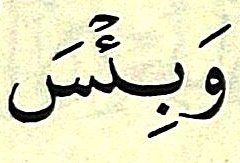 وَبِئۡسَ